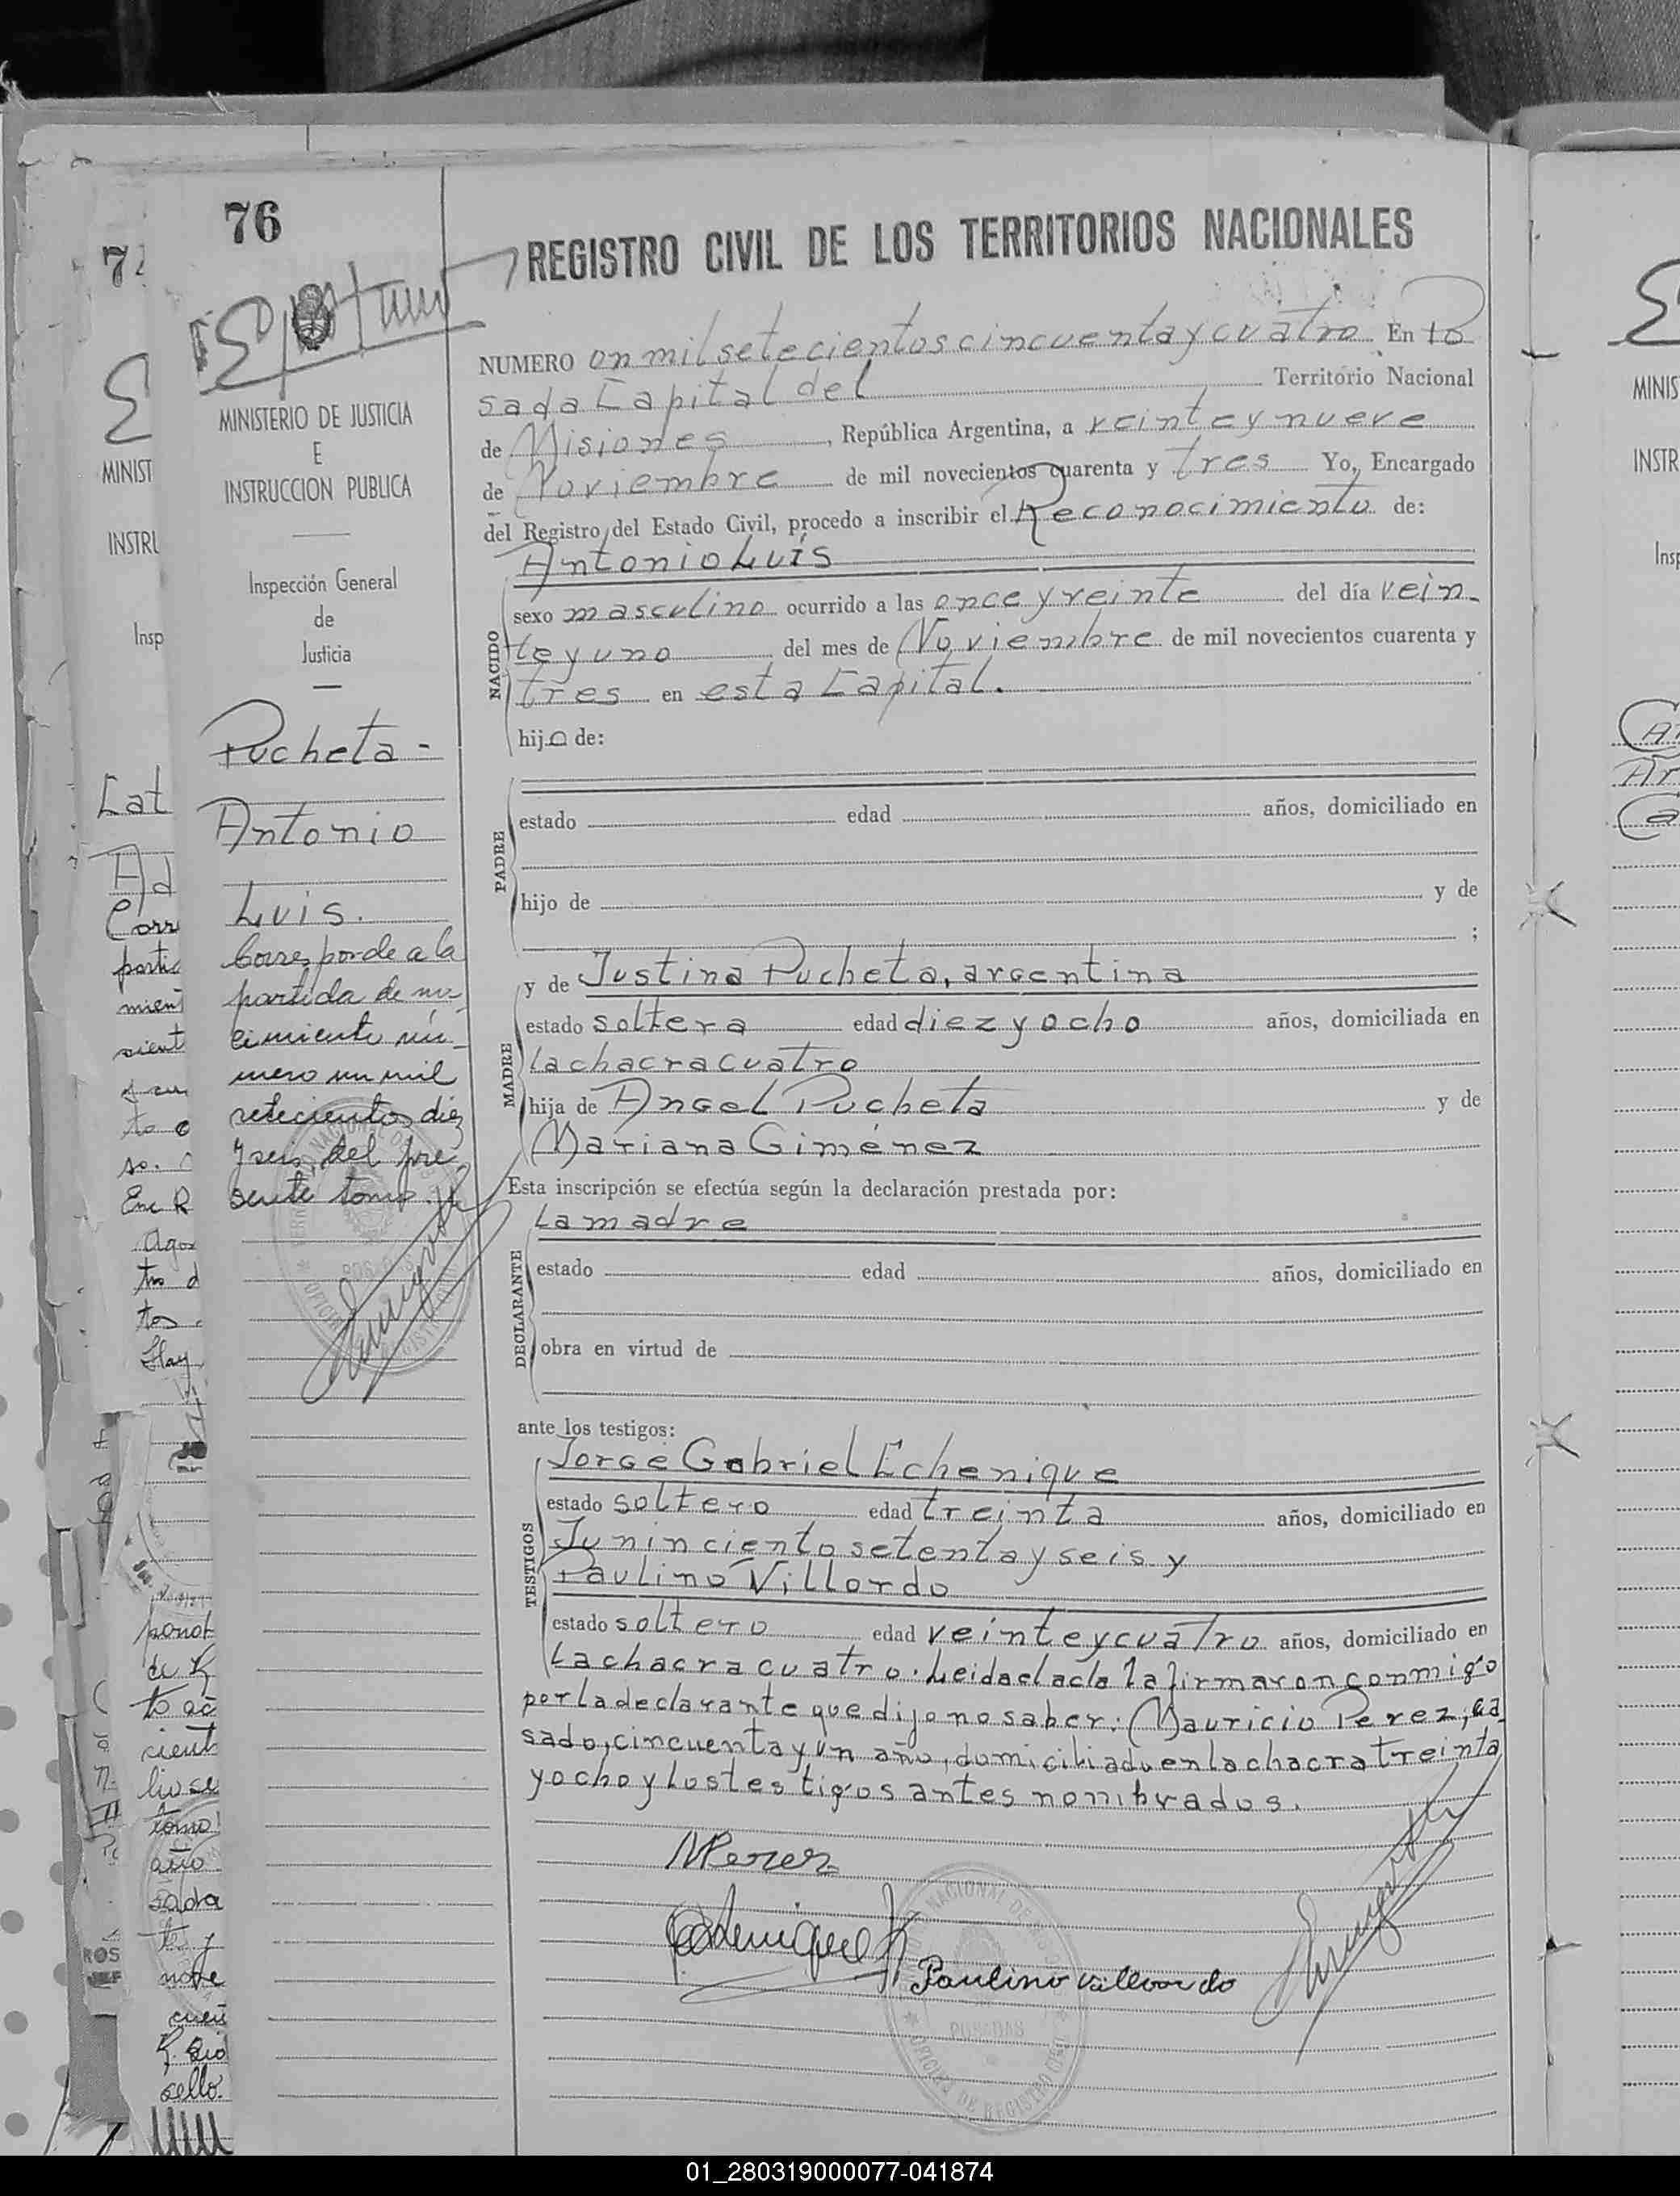 76
REGISTRO CIVIL DE LOS TERRITORIOS NACIONALES
NUMERO un mil setecientos cincuenta y cuatro En Po
sada Capital del Territorio Nacional
de Misiones, República Argentina, a veinte y nueve
de Noviembre de mil novecientos cuarenta y tres Yo, Encargado
del Registro del Estado Civil, procedo a inscribir el Reconocimiento de:
Antonio Luís
NACIDO
sexo masculino ocurrido a las once y veinte del día vein-
te y uno del mes de Noviembre de mil novecientos cuarenta y
tres en esta Capital.
hijo de:
PADRE
estado edad años, domiciliado en
hijo de y de
;
MADRE
y de Justina Pucheta, argentina
estado soltera edad diez y ocho años, domiciliada en
la chacra cuatro
hija de Angel Pucheta y de
Mariana Giménez
Esta inscripción se efectúa según la declaración prestada por:
DECLARANTE
La madre
estado edad años, domiciliado en
obra en virtud de
ante los testigos:
TESTIGOS
Jorge Gabriel Echenique
estado soltero edad treinta años, domiciliado en
Junin ciento setenta y seis y
Paulino Villordo
estado soltero edad veinte y cuatro años, domiciliado en
La chacra cuatro. Leida el acta la firmaron conmigo
por la declarante que dijo no saber: Mauricio Perez, ca
sado, cincuenta y un año, domiciliado en la chacra treinta
y ocho y los testigos antes nombrados.
MPerez
Paulino Villordo
POSADAS
OFICINA DE REGISTRO
MINISTERIO DE JUSTICIA
E
INSTRUCCION PUBLICA
Inspección General
de
Justicia
Pucheta -
Antonio
Luis.
Corresponde a la
partida de na-
cimiento nú-
mero un mil
setecientos diez
y seis, del pre
sente tomo.
7
MINIST
INSTRU
Insp
Cat
Ad
Corr
partid
mient
sient
to
so.
Enc R
Agos
tos
Hay
de R
to
cient
tomo
año
sello.
MINIS
INSTR
Insp
01_280319000077-041874